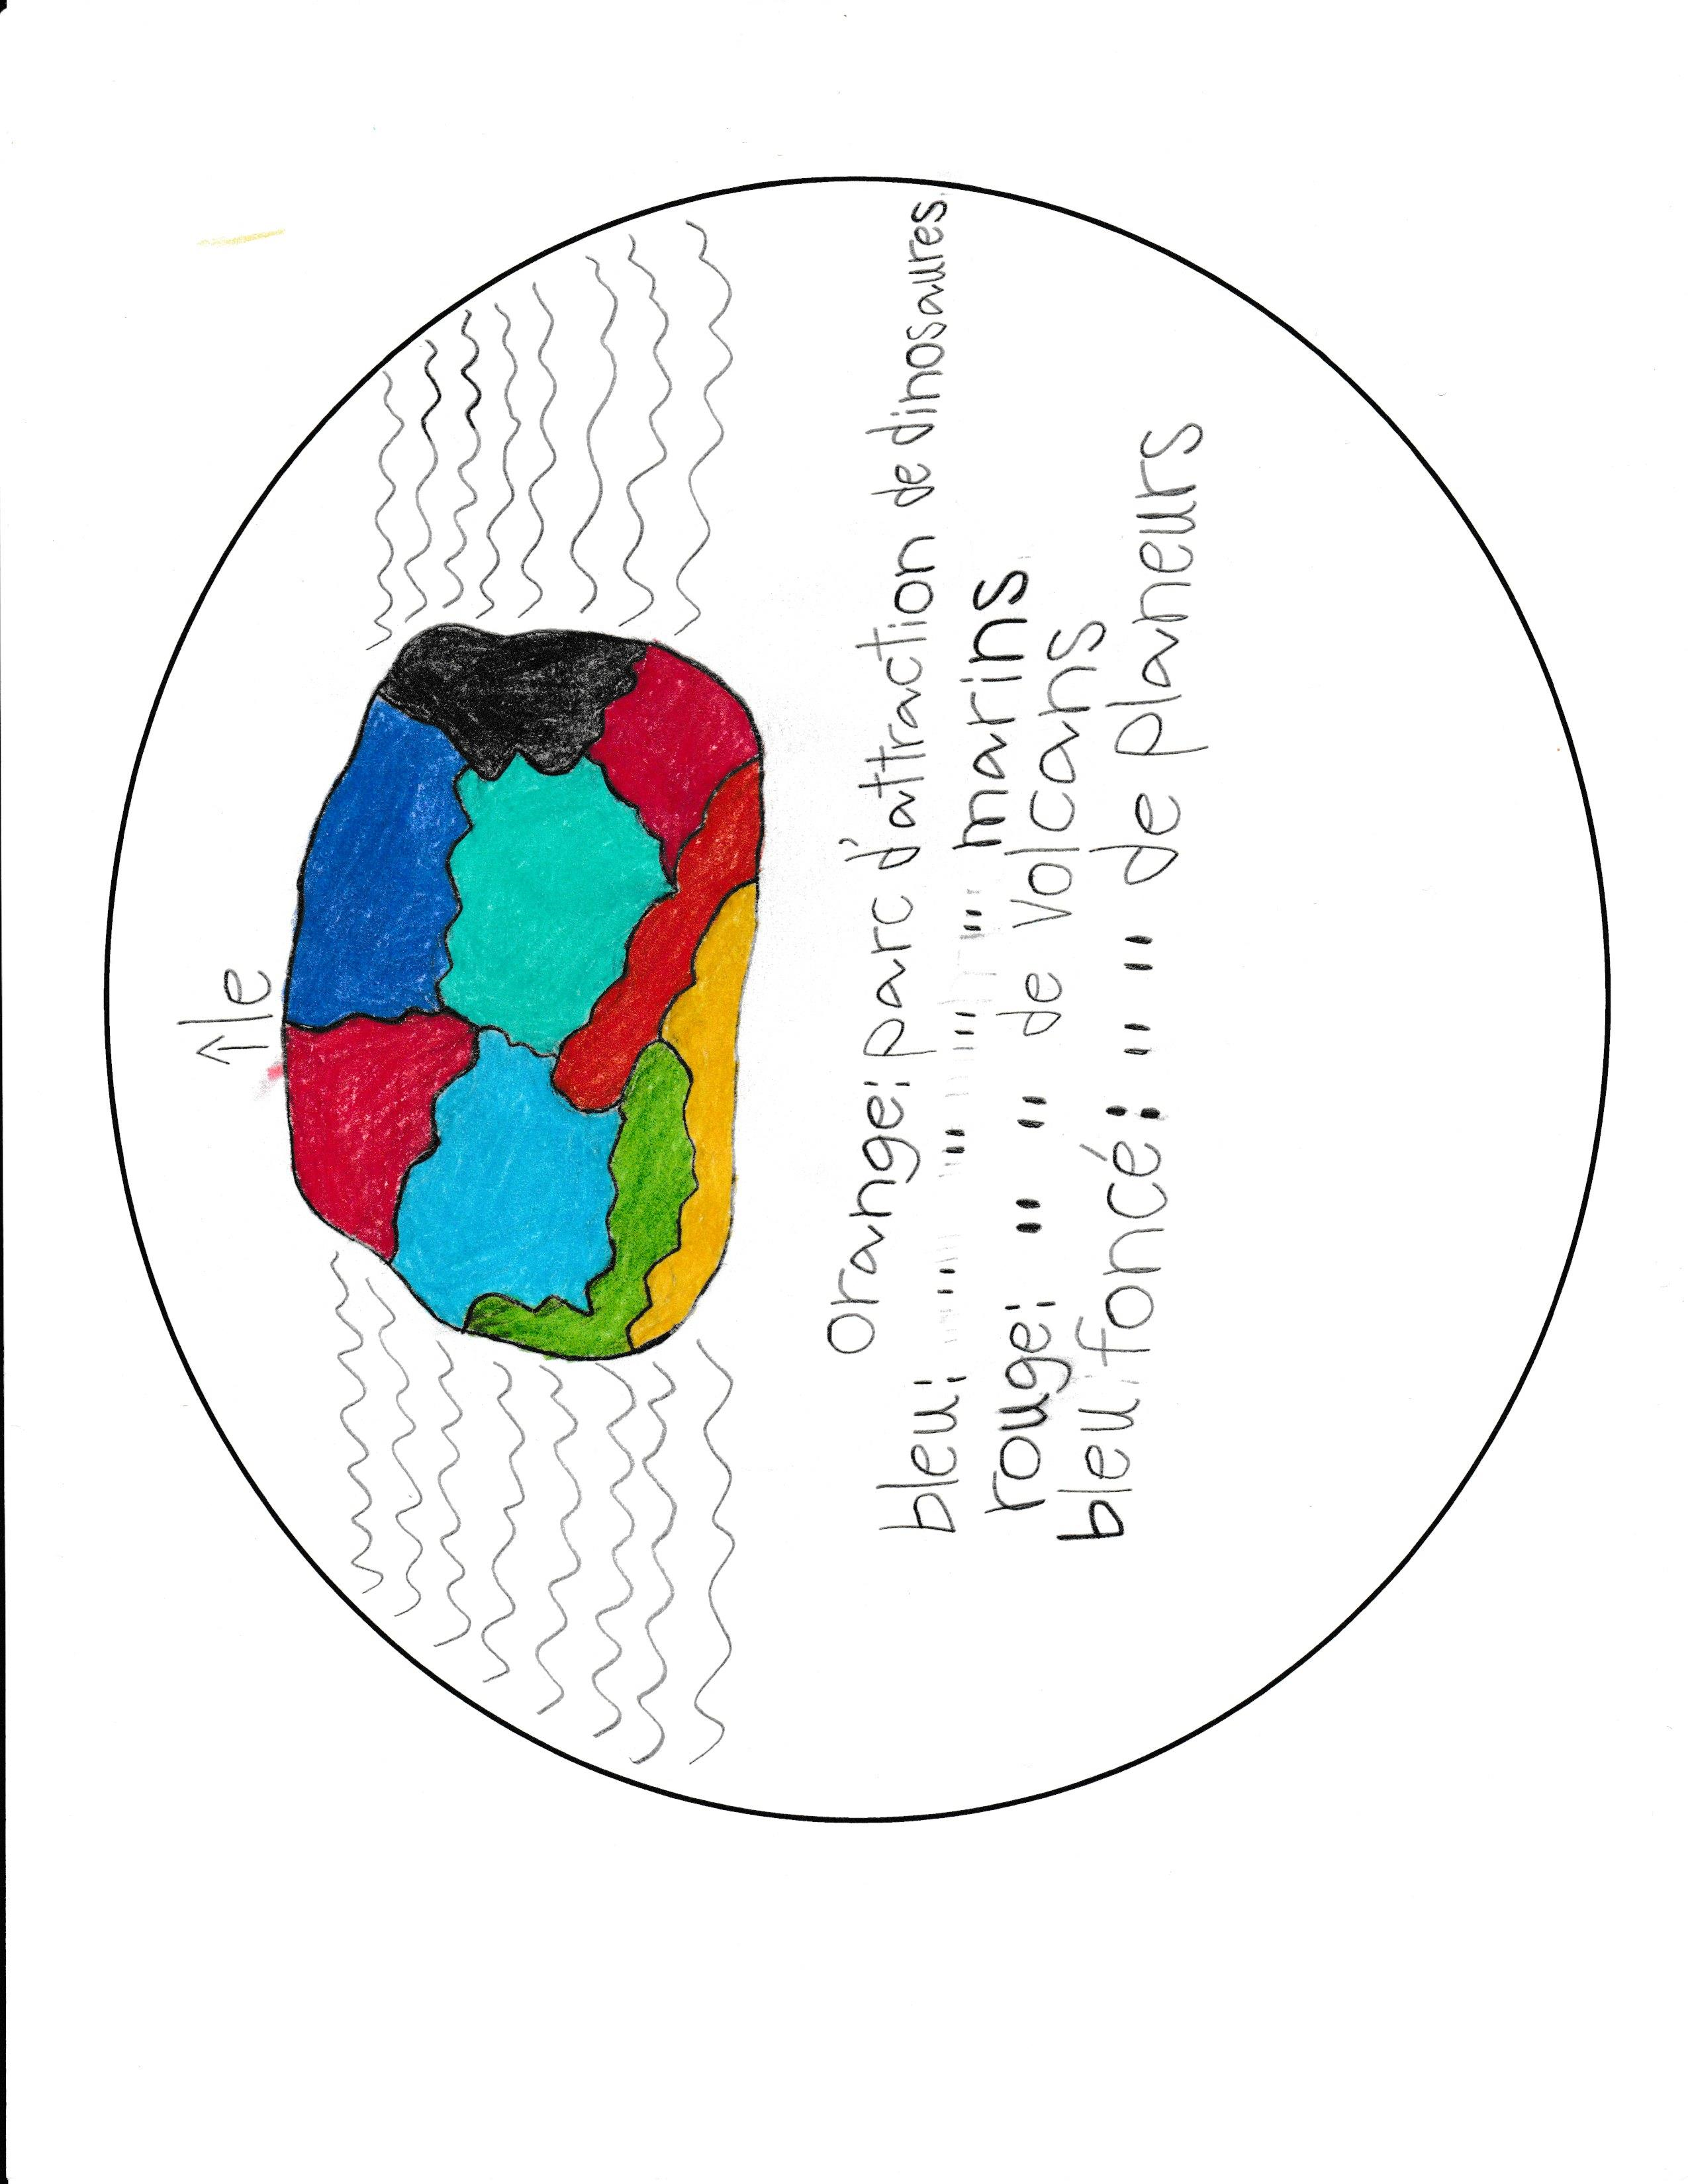 Île
orange: parc d'attraction de dinosaures.
bleu: " " " " marins
rouge: " " de volcans
bleu foncé: " " de planeurs